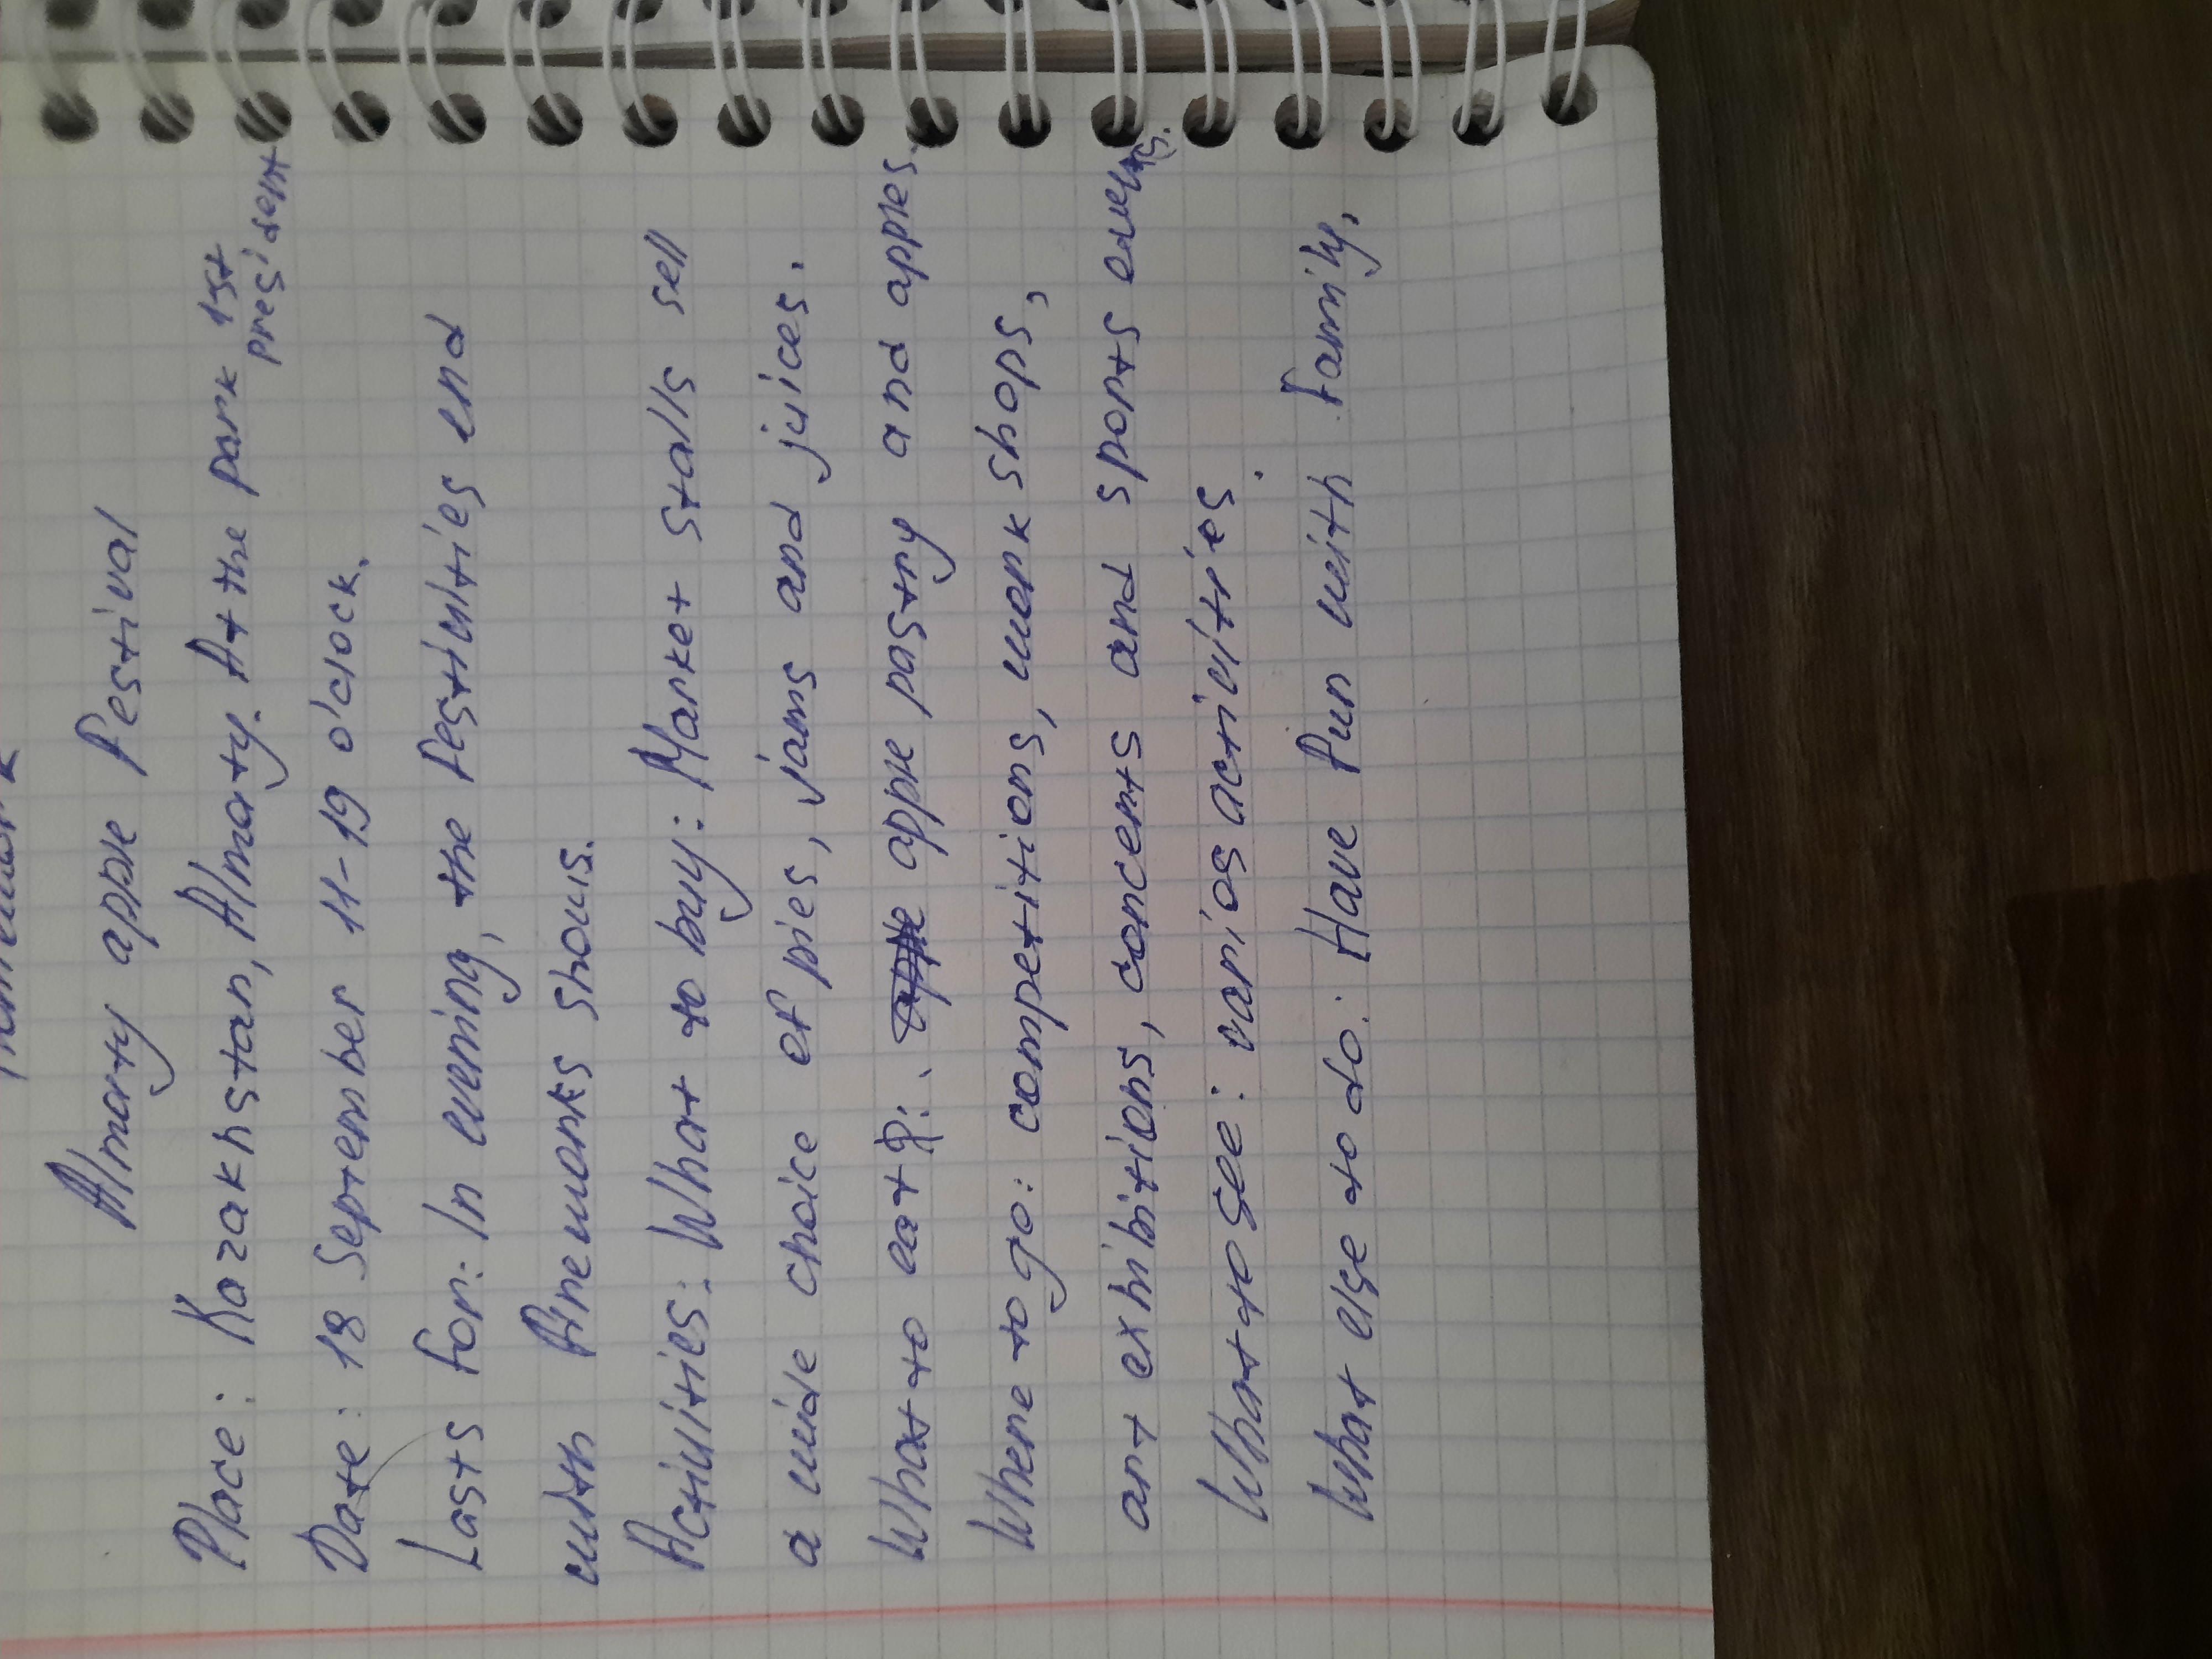 Almaty apple festival
Place: Kazakhstan, Almaty. At the park 1st
president
Date: 18 September 11-19 o'clock.
Lasts for: In evening, the festivities end
with fireworks shows.
Activities: What to buy: Market stalls sell
a wide choice of pies, jams and juices.
What to eat?: apple pastry and apples.
Where to go: competitions, work shops,
art exhibitions, concerts and sports events.
What to see: varios activities.
What else to do: Have fun with family,